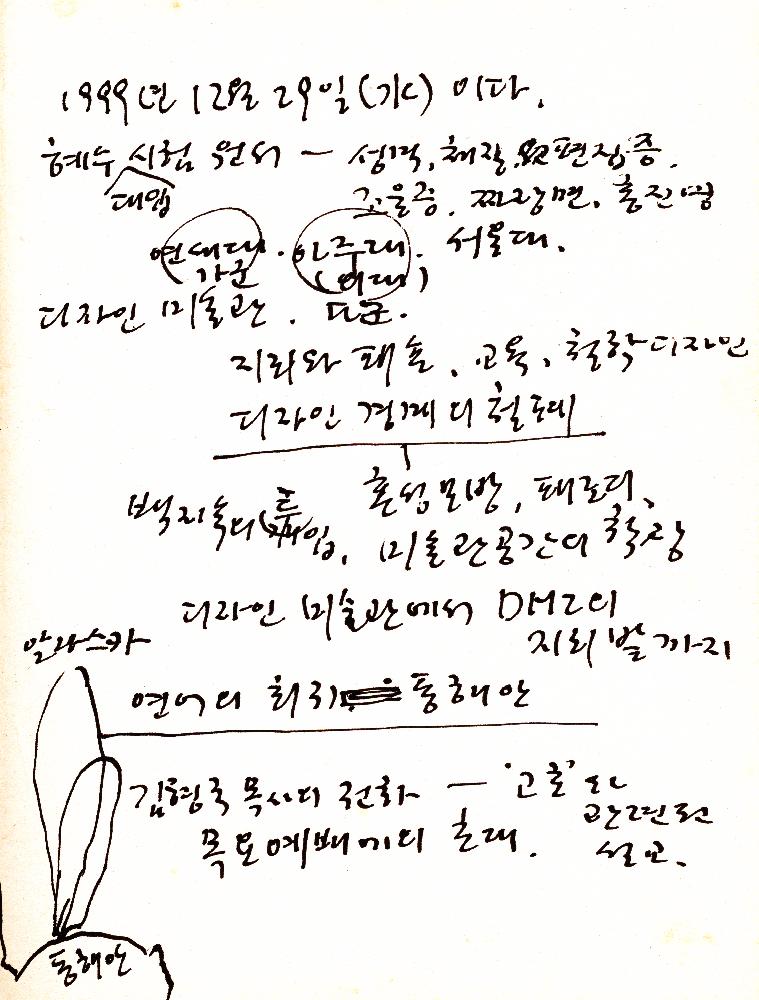 1999년 12월 29일(水) 이다.
혜수 시험 원서 — 성격, 편집증.
대입
조울증. 짜장면. 홍진영
연세대. 아주대. 서울대.
가군 (이대)
디자인 미술관. 다군.
지뢰와 패솔, 교육, 철학디자인
디자인 경계의
혼성모방, 패로디,
백지숙의 투입, 미술관공간의 확장
디자인 미술관에서 DMZ의
지뢰밭까지
알라스카
연어의 회귀 동해안
김형국 목사의 전화 — '고혼'과
관련된
목요예배에의 초대. 설교.
동해안